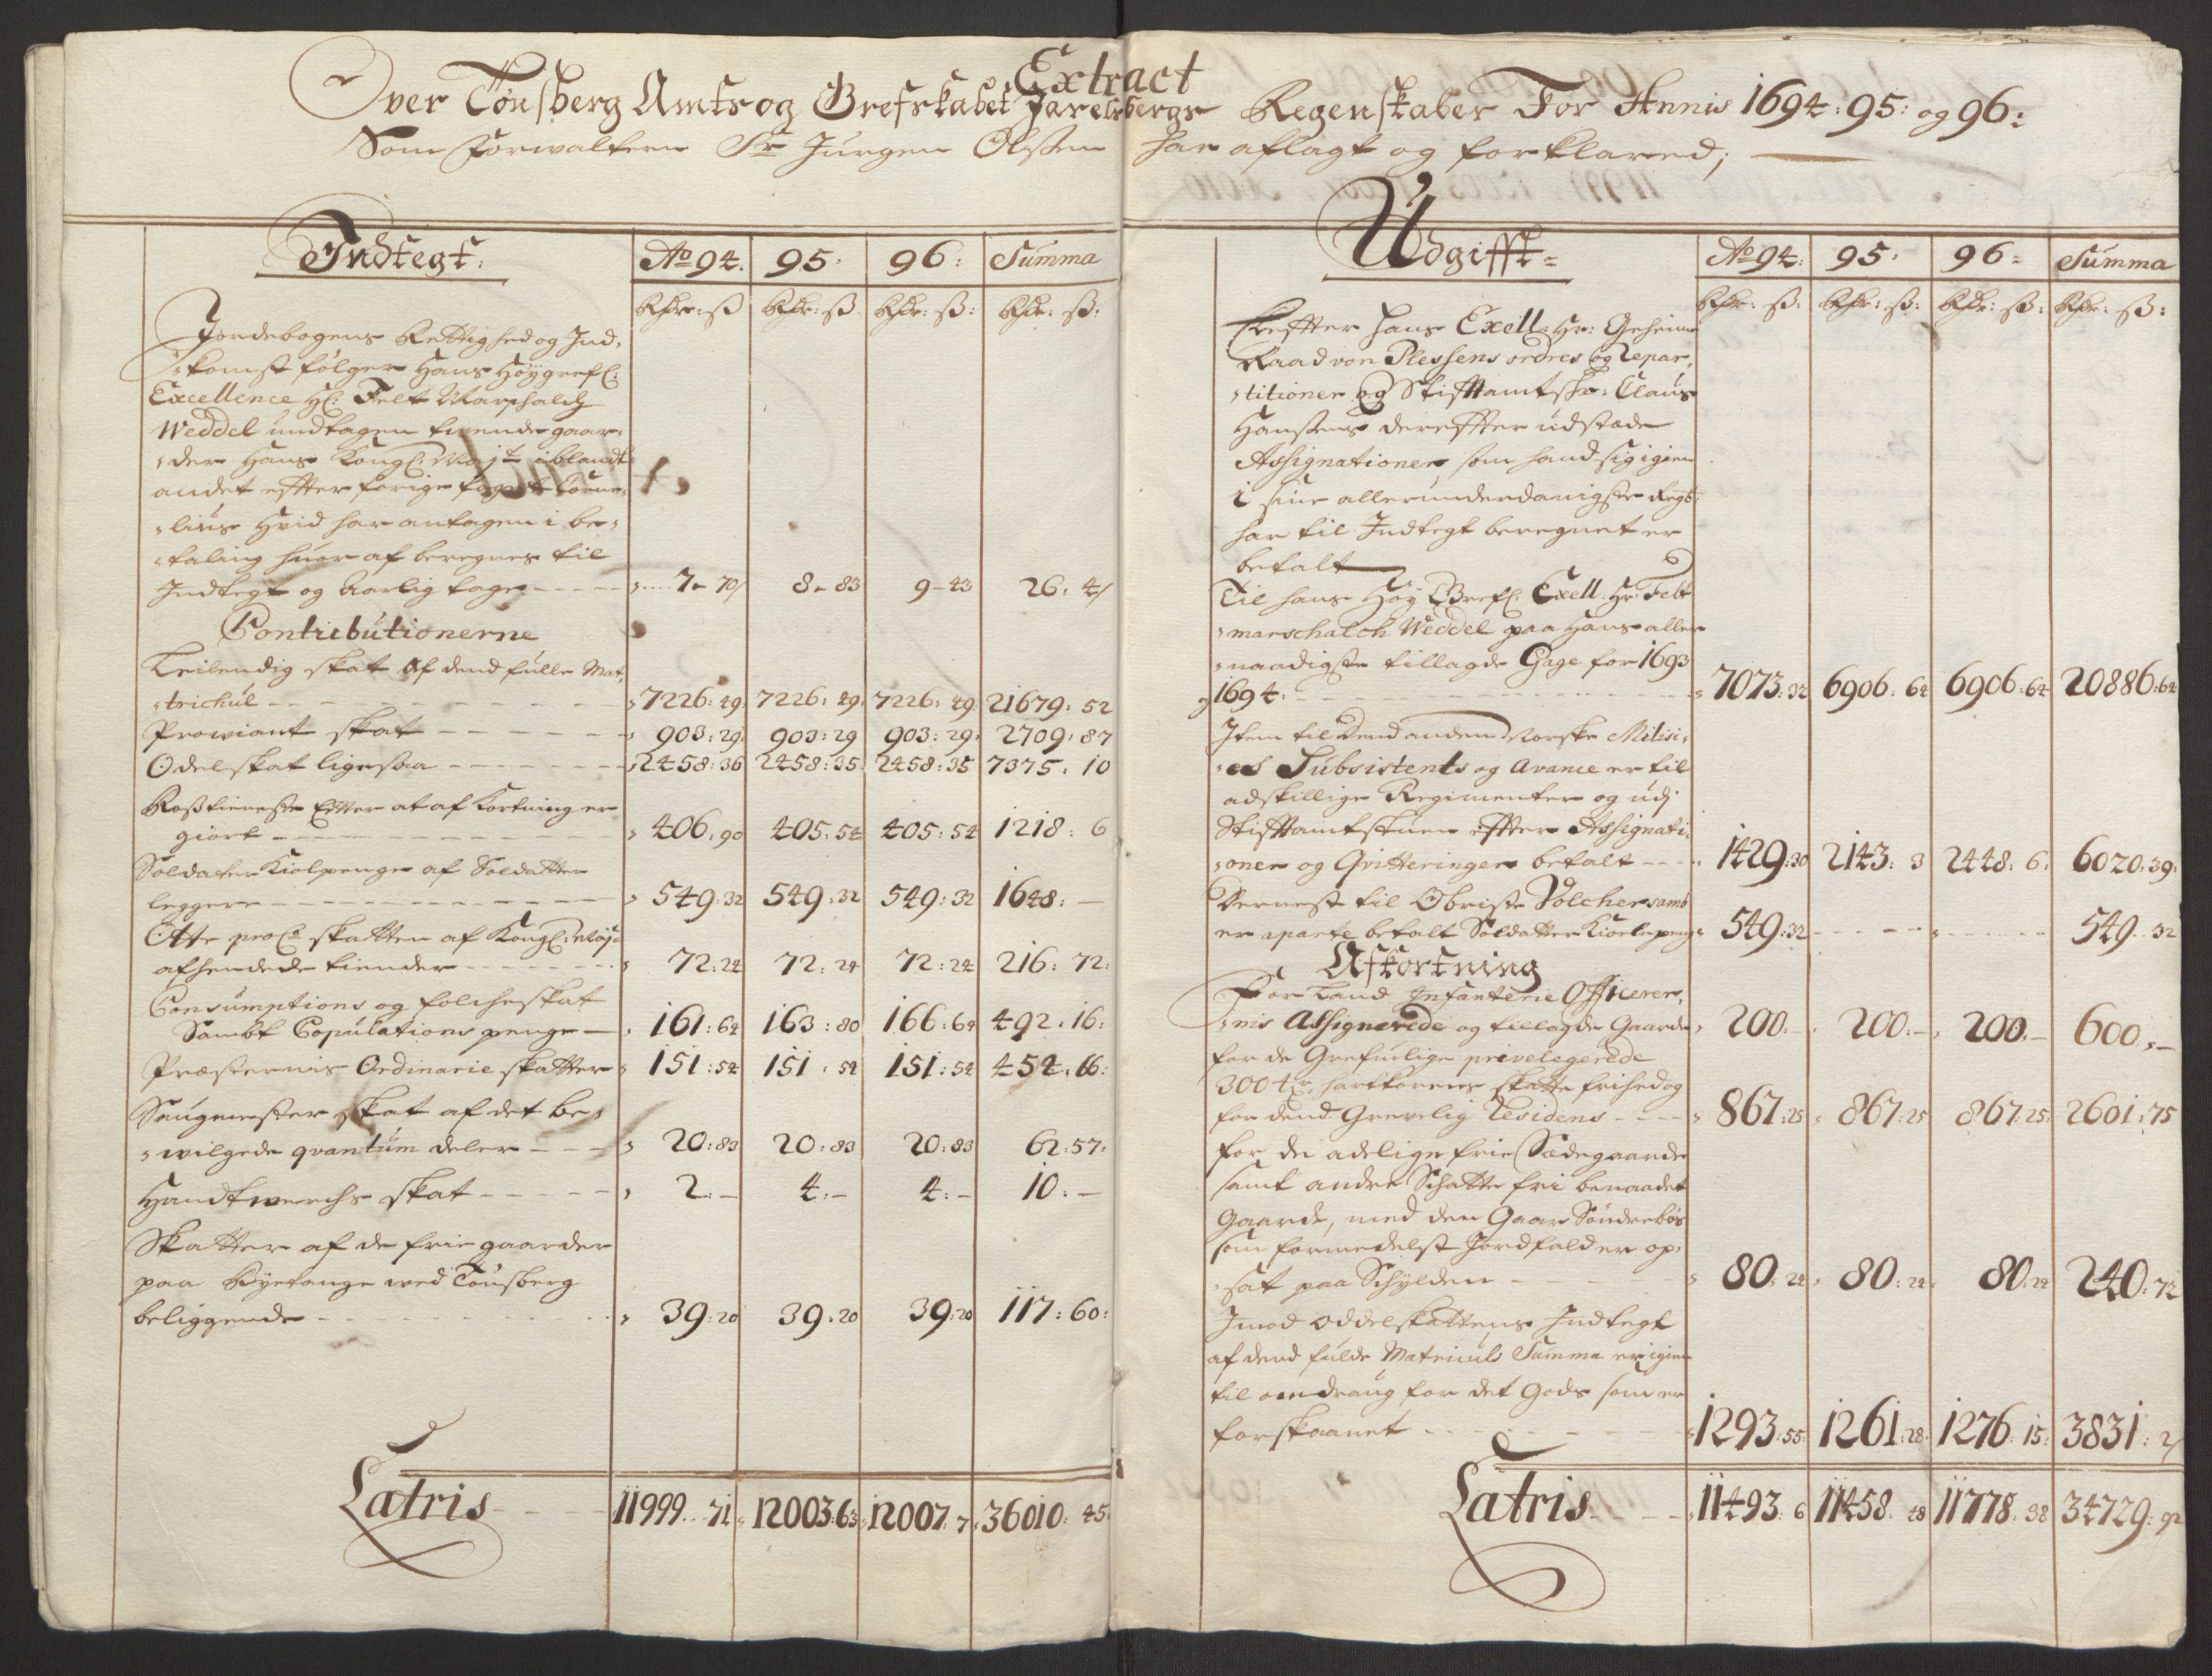 Extract
Over Tønsberg Amts og Grefskabet Jarelsbergs Regenskaber For Annis 1694: 95: og 96:
Som Forwalteren Sr Jurgen Olssen har aflagt og forklared;
Indtegt:
Ao 94. 95. 96: Summa
Rdr: ß Rdr: ß Rdr: ß: Rdr: ß:
Jordebogens Rettighed og Ind,
komst følger Hans Høygrefl:
Excellence Hr: Felt Marschalch
Weddel undtagen tvende gaar,
der Hans Kongl: Mayt iblandt
andet effter forige fogest Corne,
lius Hvid har antagen i be,
taling huor af beregnes til
Indtegt og Aarlig tages - - - - 7 - 70/ 8 - 83 9 - 43 26: 4/
Contributionerne
Leilendig skat Af dend fulle Mat,
trichul - - - 7226: 49: 7226: 49: 7226: 49: 21679: 52
Prowiant skat - - - 903: 29: 903: 29 903: 29: 2709: 87
Odelskat ligesaa - - - 2458: 36 2458: 35: 2458: 35 7375: 10
Rostieneste Effter at afkortning er
giort - - - 406: 90 405: 54 405: 54 1218: 6
Soldater Kiolpenge af Soldatter
leggere - - - 549: 32 549: 32 549: 32 1648: -
Otte proCto skatten af Kongl: Mays
afhendede tiender - - - 72: 24 72: 24 72: 24 216: 72:
Consumptions og folcheskat
Sambt Copulations penge - 161: 64 163: 80 166: 64 492: 16:
Præsternis Ordinarie skatter 151: 54 151: 54 151: 54 454: 66:
Saugmester skat af det be,
wilgede qvantum deler - - - 20: 83 20: 83 20: 83 62: 57:
Handtwerchs skat - - - 2: - 4: - 4: - 10: -
Skatter af de frie gaarder
paa Byefange wed Tønsberg
beliggende - - - 39: 20 39: 20 39: 20 117: 60:
Latris - - - 11999: 71 12003: 63 12007: 7 36010: 45:
Udgifft=
Ao 94: 95: 96= Summa
Rdr: ß: Rdr: ß: Rdr: ß: Rdr: ß:
Effter Hans Exell: Hr: Geheime
Raad von Plessens ordres og Repar,
titioner og Stifftamtskr: Claus
Hanssens dereffter udstæde
Assignationer som hand sig igien
i sine allerunderdanigste Regsk:
har til Indtegt beregnet er
betalt
Til Hans Høy Grefl: Exell: Hr: Felt
marschalch Weddel paa Hans aller
naadigste tillagde Gage for 1693
og 1694: - - - 7073: 32 6906: 64 6906: 64 20886: 64
Item til dend anden Norske Militi,
es Subsistents og Avance er til
adskillige Regimenter og udj
Stifftamtstuen effter Assignati,
oner og Qvitteringer betalt - - - 1429: 30 2143: 3 2448: 6: 6020: 39:
Dernest til Obriste Volchersamb
er aparte betalt Soldatter Kiolepeng 549: 32 - - - - - - 549: 32
Afkortning
For Land Infanterie Officerer,
nis Assignerede og tillagde Gaarde 200: - 200: - 200: - 600: -
for de Grefuelige privelegerede
300 tr: hartkorens skatte frihed og
for dend Grevelig Residens - - - 867: 25 867: 25 867: 25: 2601: 75
for de adelige frie Sædegaarde
samt andre Schatte fri benaadet
Gaarde, med den Gaar Søndrebøs
som formedelst Jordfald er op,
sat paa Schylden - - - 80: 24 80: 24 80: 24 240: 72
Imod Oddelskattens Indtegt
af dend fulde Matriculs Summa er igien
til omdraug for det Gods som er
forskaanet - - - 1293: 55: 1261: 28: 1276: 15: 3831: 2/
Latris - - - 11493: 6 11458: 48 11778: 38 34729: 92